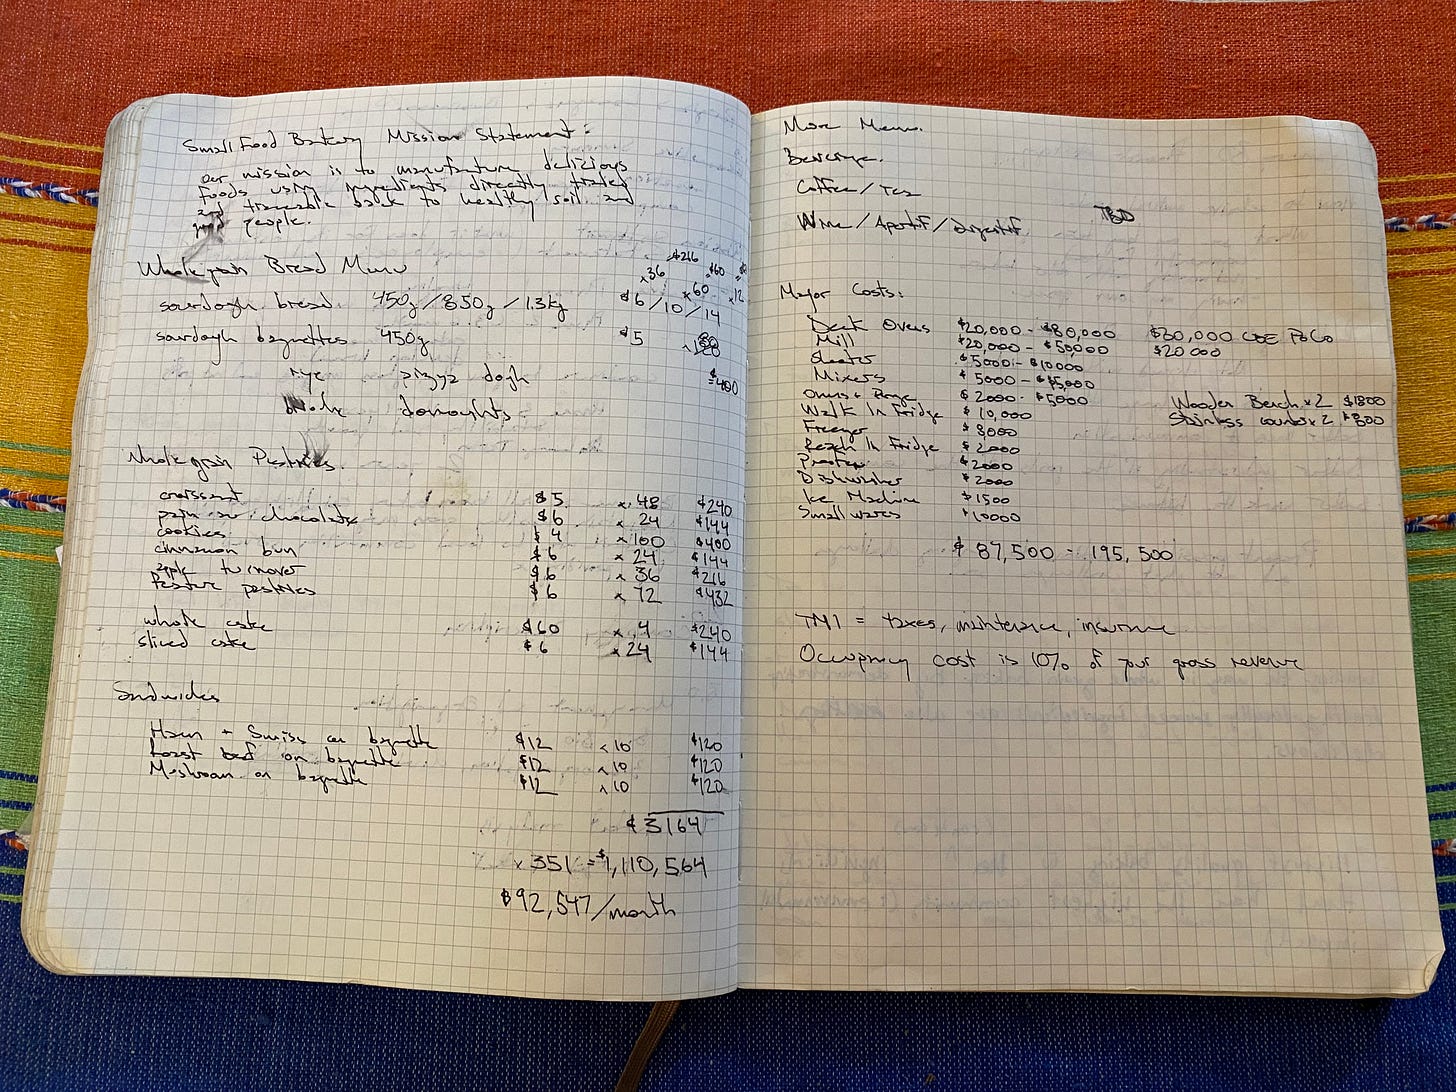 Small Food Bakery Mission Statement:
Our mission is to manufacture delicious
foods using ingredients directly traded
and traceable back to healthy soil and
people.
Whole grain Bread Menu
$216 $60
x36 x60 x12
sourdough bread 450g/850g/1.3kg $6/10/14
sourdough baguettes 450g $5 x
rye pizza dough $400
doughnuts
Whole grain Pastries
croissant $5 x 48 $240
pain au chocolate $6 x 24 $144
cookies $4 x 100 $400
cinnamon bun $6 x 24 $144
apple turnover $6 x 36 $216
feature pastries $6 x 72 $432
whole cake $60 x 4 $240
sliced cake $6 x 24 $144
Sandwiches
Ham + Swiss on baguette $12 x 10 $120
Roast beef on baguette $12 x 10 $120
Mushroom on baguette $12 x 10 $120
$3164
x 351 = $1,110,564
$92,547/month
More Menu.
Beverage.
Coffee/Tea
Wine/Apertif/Digestif TBD
Major Costs:
Deck Ovens $20,000 - $80,000 $30,000
Mill $20,000 - $50,000 $20 000
Sheeter $5000 - $10000
Mixers $5000 - $15,000
Ovens + Range $2000 - $5000 Wooden Bench x 2 $1800
Walk In Fridge $10,000 Stainless counter x 2 $800
Freezer $8000
Reach In Fridge $2000
$2000
Dishwasher $2000
Ice Machine $1500
Smallwares $10000
$87,500 - 195,500
TMI = taxes, maintenance, insurance
Occupancy cost is 10% of your gross revenue